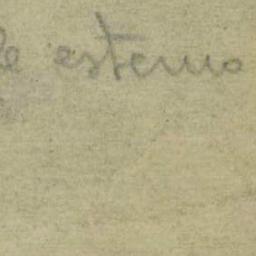 le esterno